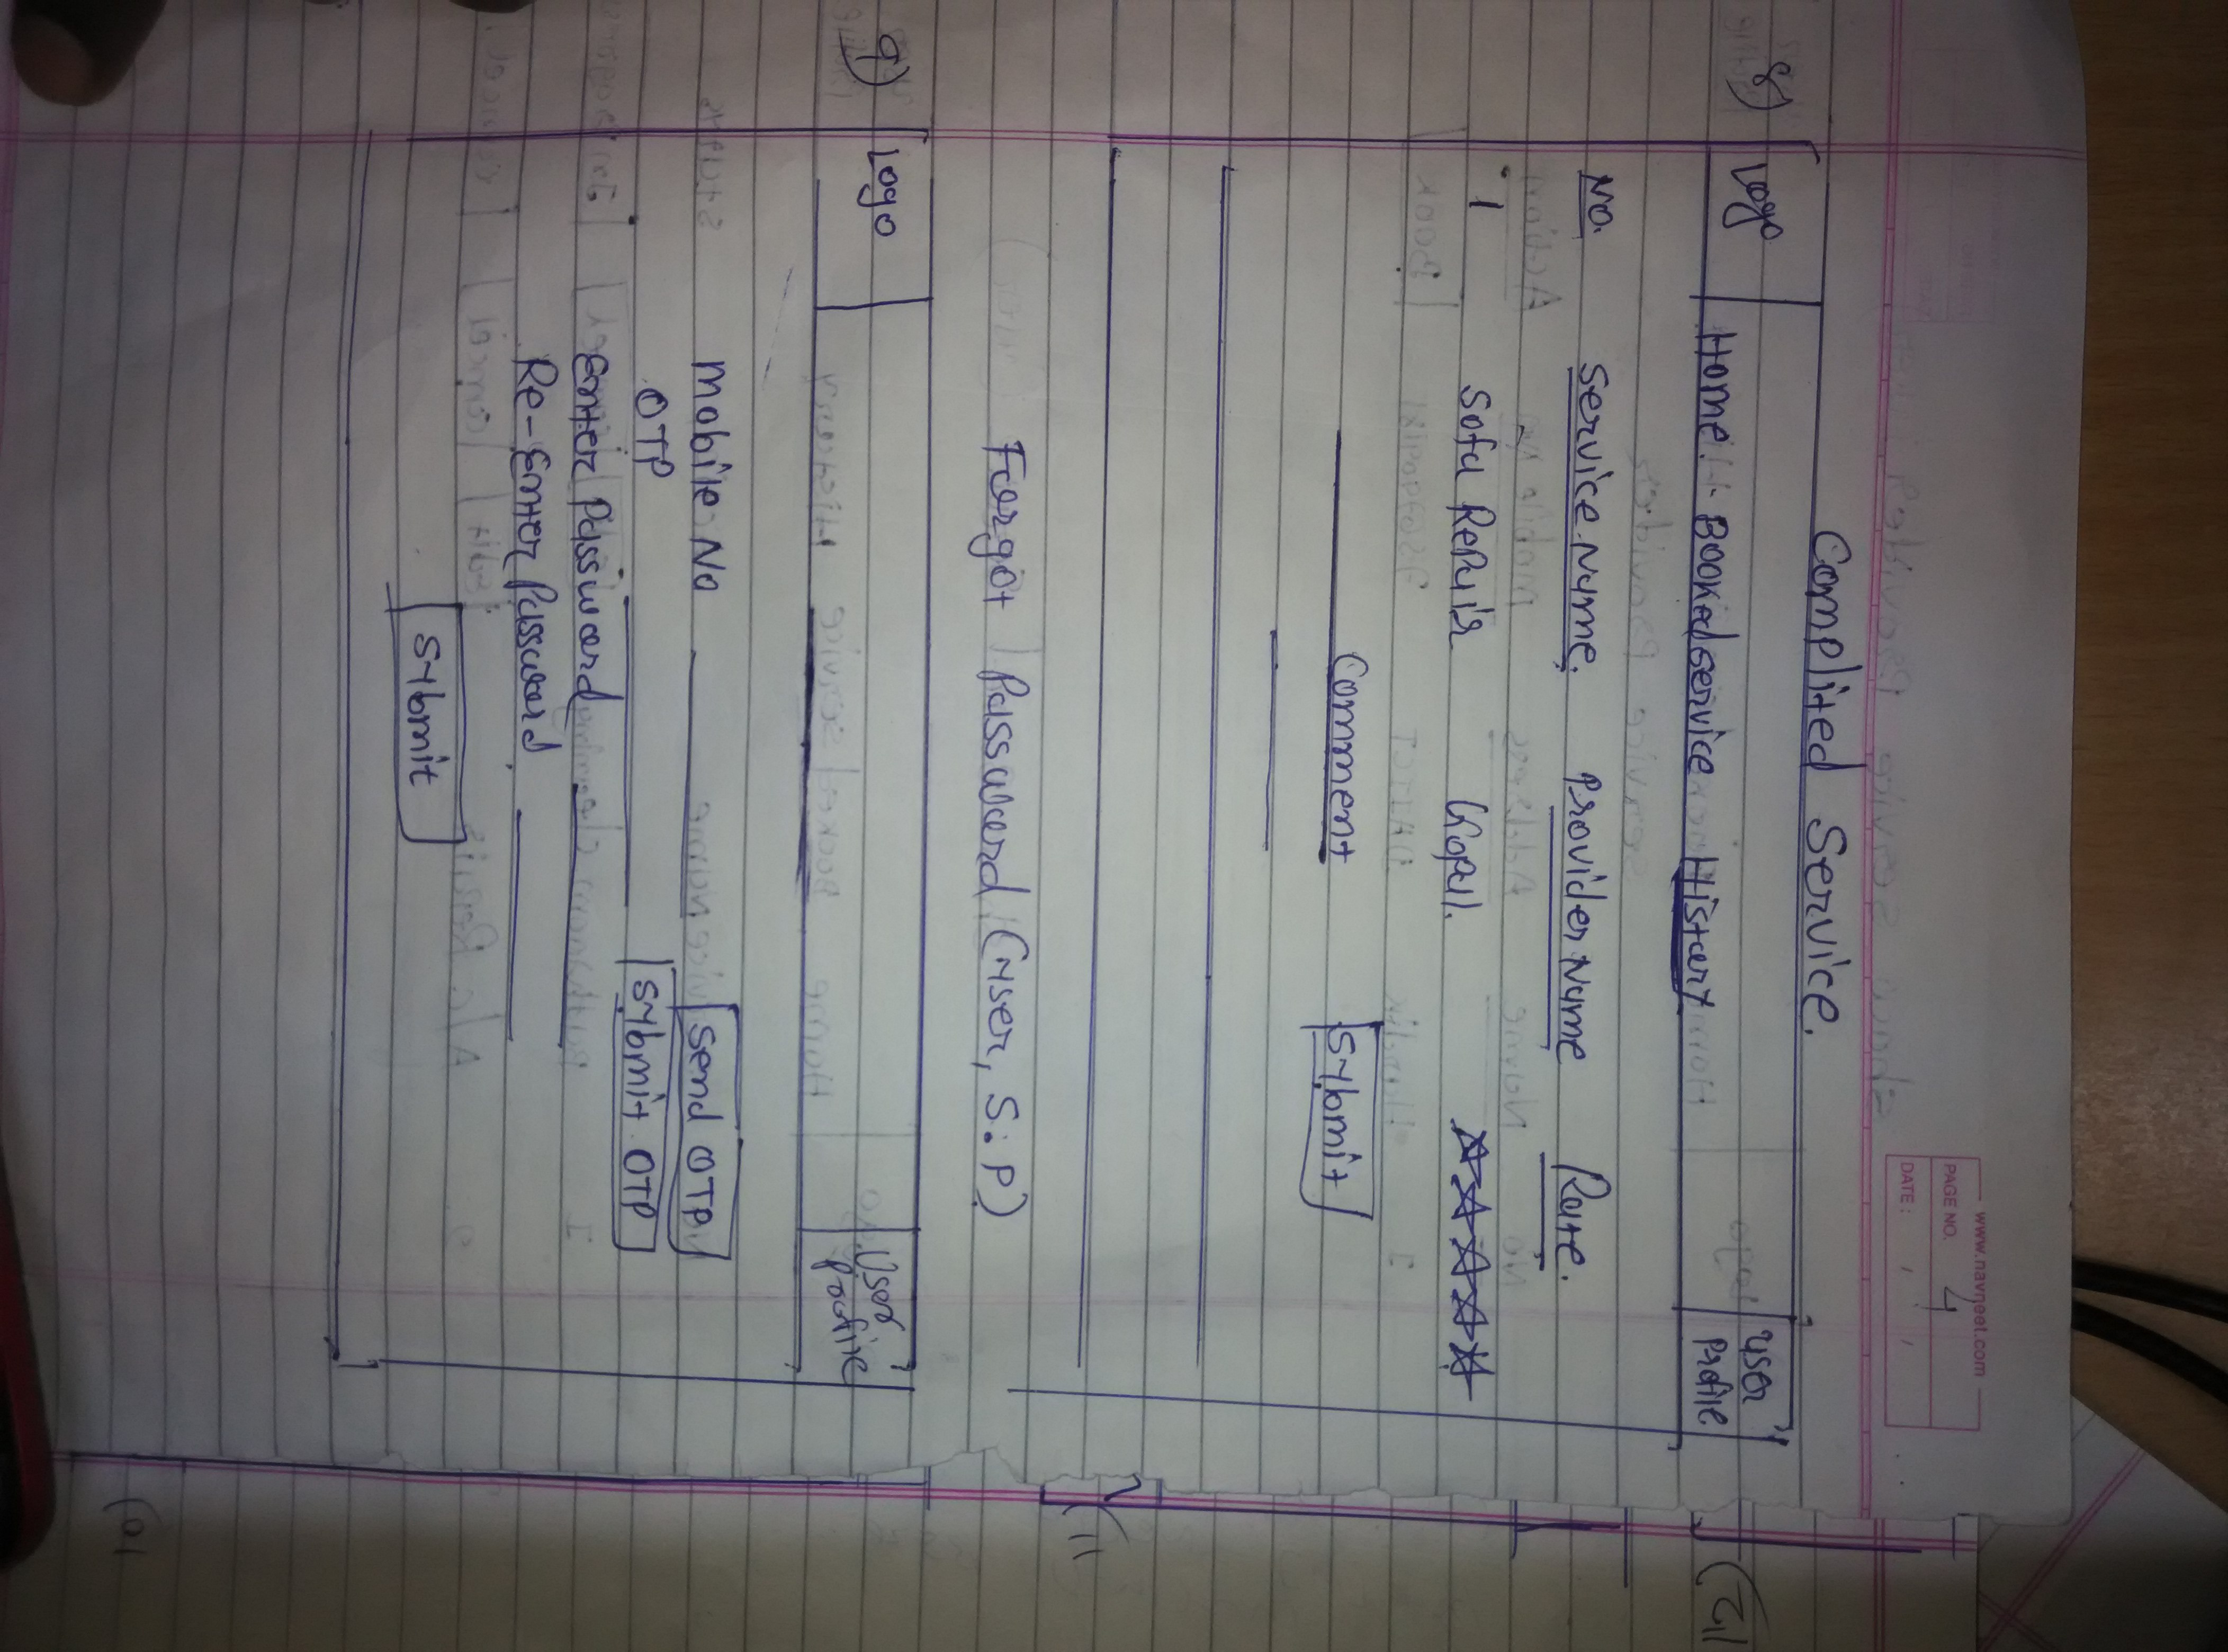 www.navneet.com
PAGE NO. 4
DATE : / /
Complited Service.
8)
Logo Home. Booked service History User Profile
No. Service Name. Provider Name Rate.
1 Sofa Repair Gopal. ☆☆☆☆☆
Comment Submit
Forgot Password (User, S.P)
9)
Logo User Profile
Mobile No Send OTP
OTP Submit OTP
Enter Password
Re-Enter Password
Submit
10)
11)
12)